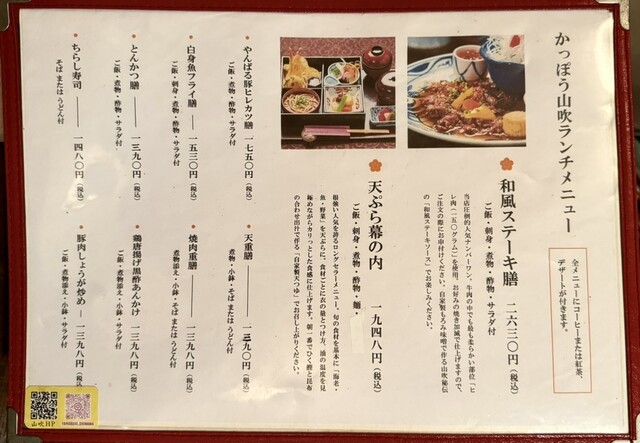 かっぽう山吹ランチメニュー
全メニューにコーヒーまたは紅茶、
デザートが付きます。
和風ステーキ膳 二六三〇円(税込)
ご飯・刺身・煮物・酢物・サラダ付
当店圧倒的人気ナンバーワン。牛肉の中でも最も柔らかい部位「ヒ
レ肉(一五〇グラム)」を使用。お好みの焼き加減で仕上げますので、
ご注文の際にお申付けください。自家製もろみ味噌で作る山吹秘伝
の「和風ステーキソース」でお楽しみください。
天ぷら幕の内 一九四八円(税込)
ご飯・刺身・煮物・酢物・麺・
根強い人気を誇るロングセラーメニュー。旬の食材を基本に「海老・
魚・野菜」を天ぷらに。食材ごとに衣の量とつけ方、油の温度を見
極めながらカリっとした食感に仕上げます。朝一番でひく鰹と昆布
の合わせ出汁で作る「自家製天つゆ」でお召し上がりください。
やんばる豚ヒレカツ膳 一七五〇円(税込)
ご飯・煮物・酢物・サラダ付
白身魚フライ膳 一五三〇円(税込)
ご飯・刺身・煮物・酢物・サラダ付
とんかつ膳 一三九〇円(税込)
ご飯・煮物・酢物・サラダ付
ちらし寿司 一四八〇円(税込)
そばまたはうどん付
天重膳 一三九〇円(税込)
煮物・小鉢・そばまたはうどん付
焼肉重膳 一三九八円(税込)
煮物添え・小鉢・そばまたはうどん付
鶏唐揚げ黒酢あんかけ 一三九八円(税込)
ご飯・煮物添え・小鉢・サラダ付
豚肉しょうが炒め 一三九八円(税込)
ご飯・煮物添え・小鉢・サラダ付
山吹HP
YAMABUKI_OKINAWA